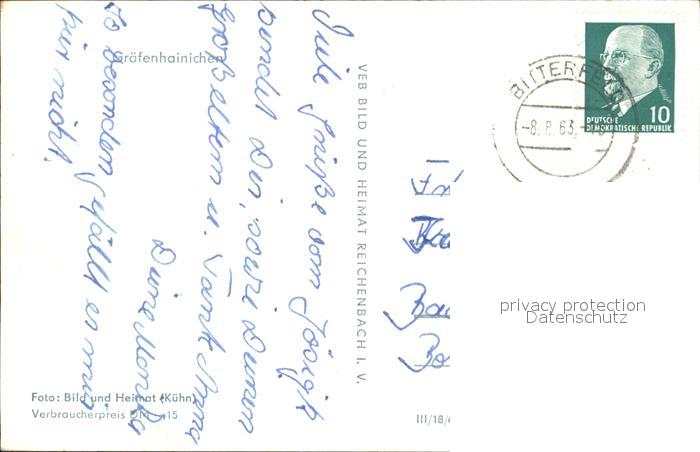 Gräfenhainichen
Viele Grüße vom
sendet Dir, sowie Deinen
Großeltern u. Tante Anna
Deine Monika
So besonders gefällt es mir
hier nicht.
VEB BILD UND HEIMAT REICHENBACH I. V.
BITTERFELD
-8.8.63.-
10
DEUTSCHE
DEMOKRATISCHE REPUBLIK
privacy protection
Datenschutz
Foto: Bild und Heimat (Kühn)
Verbraucherpreis DM -,15
III/18/